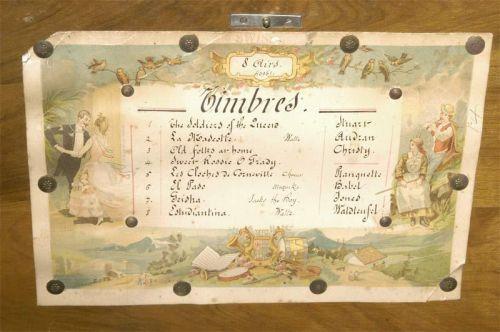 8 Airs.
Timbres.
1 The Soldiers of the Queen Stuart
2 La Mascotte Waltz Audran
3 Old folks at home Christy
4 Sweet Rossie O'Grady
5 Les Cloches de Corneville Chorus Planquette
6 El Paso Mazurka Babel
7 Geisha Jack's the Boy. Jones
8 Estudiantina Waltz Waldteufel